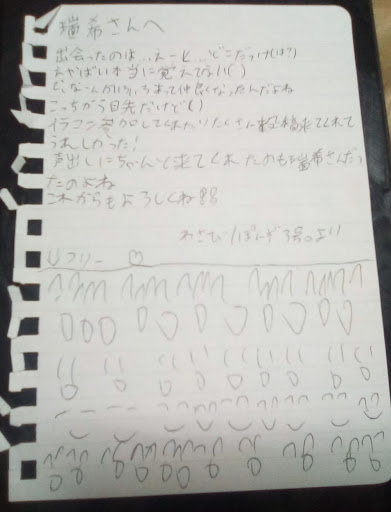 瑞希さんへ
出会ったのは…えーと…どこだっけ(は?)
えやばい本当に覚えてない()
ど、なんかいろいろあって仲良くなったんだよね
こっちから目先だけど()
イラコン参加してくれたりたくさん投稿来てくれて
うれしかった!
声出しにちゃんと来てくれたのも瑞希さんだっ
たのよね
これからもよろしくね
わさび/ぽんず
より
フリー ♡